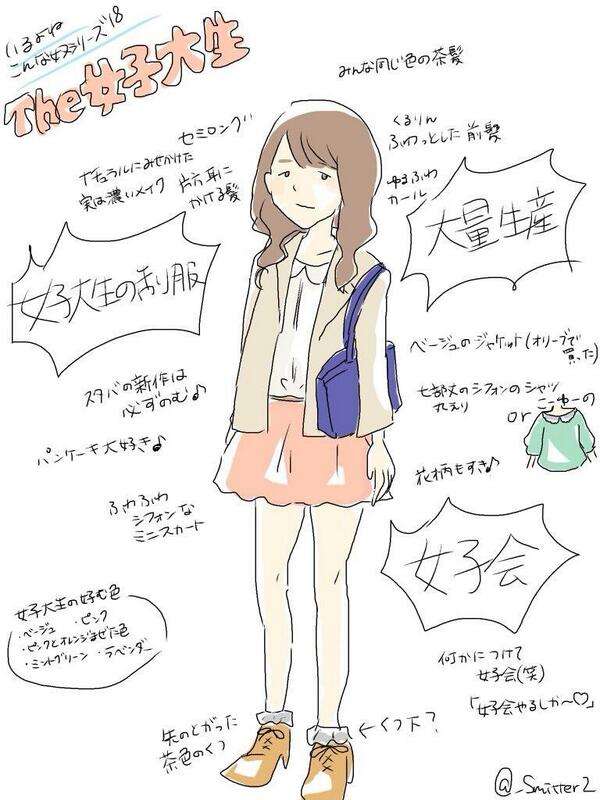 いるよね
こんな女シリーズ18
The女子大生
みんな同じ色の茶髪
セミロング
くるりん
ふわっとした前髪
ナチュラルにみせかけた
実は濃いメイク
片方耳に
かける髪
ゆるふわ
カール
大量生産
女子大生の制服
ベージュのジャケット(オリーブで
買った)
スタバの新作は
必ずのむ♪
七部丈のシフォンのシャツ
丸えり
or
こーゆーの
パンケーキ大好き♪
花柄もすき♪
ふわふわ
シフォンな
ミニスカート
女子会
女子大生の好む色
・ベージュ ・ピンク
・ピンクとオレンジまぜた色
・ミントグリーン ・ラベンダー
何かにつけて
女子会(笑)
「女子会やるしか〜♡」
先のとがった
茶色のくつ
←くつ下?
@_Smitter2